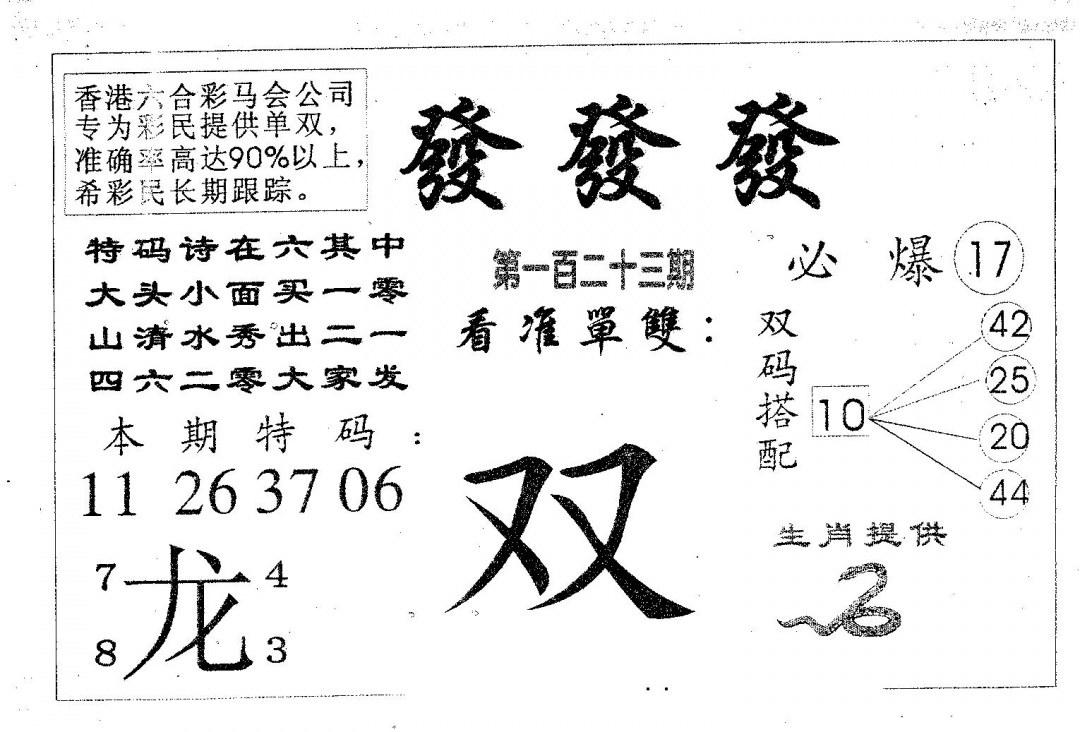 香港六合彩马会公司
专为彩民提供单双，
准确率高达90%以上，
希彩民长期跟踪。
發發發
特码诗在六其中
大头小面买一零
山清水秀出二一
四六二零大家发
第一百二十三期
看准單雙：
必爆17
双码搭配
10
42
25
20
44
本期特码：
11 26 37 06
双
生肖提供
7 4
龙
8 3